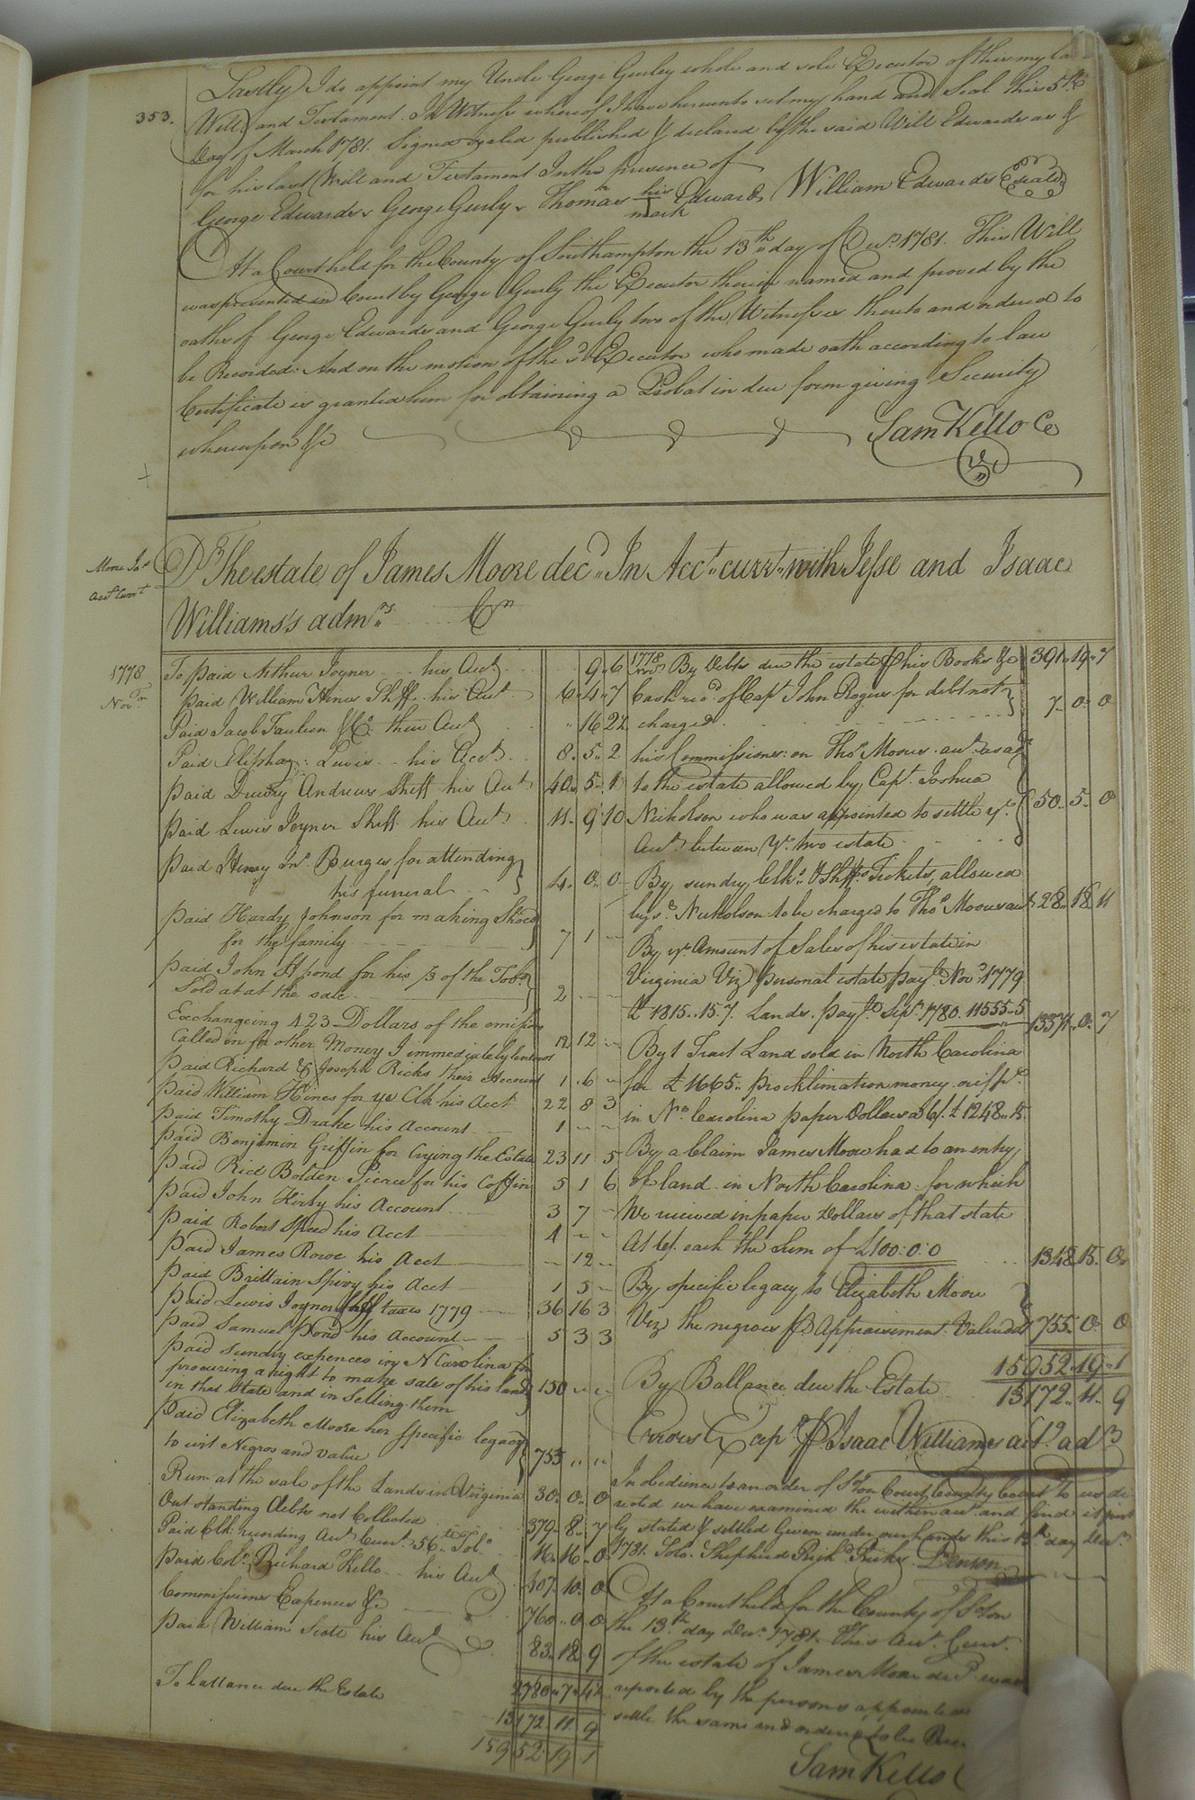 353.
Lastly I do appoint my Uncle George Gurley whole and sole Executor of this my la
Will and Testament. In Witness whereof I have hereunto set my hand and Seal this 5th
Day of March 1781. Signed Sealed published & declared by the said Will Edwards as &
for his last Will and Testament In the presence of
George Edwards, George Gurley, Thomas his mark Edwards William Edwards (Seal)
At a Court held for the County of Southampton the 13th day of Decr. 1781. This Will
was presented in Court by George Gurley the Executor therein named and proved by the
oaths of George Edwards and George Gurley two of the Witnesses thereto and ordered to
be Recorded. And on the motion of the sd. Executor who made oath according to law
Certificate is granted him for obtaining a Probat in due form giving Security
whereupon &c
Sam Kello Cc
Moore Jas
Acct Currt
Dr The estate of James Moore decd. In Acct. currt. with Jesse and Isaac
Williams's admrs. Cr
1778
Novr
To paid Arthur Joyner his Acct 9 6
paid William Hines Shff. his Acct 6 4 7
Paid Jacob Faulcon & Co. their Acct 16 2½
Paid Elisha Lewis his Acct. 8 5 2
paid Drewry Andrews Sheff his Acct 40 5 1
paid Lewis Joyner Sheff. his Acct. 11 9 10
paid Henry Jno. Burges for attending
his funeral 4 0 0
paid Hardy Johnson for making Shoes
for the family 7 1
paid John Pond for his ⅓ of the Tobo.
Sold at at the sale 2
Exchangeing 423 Dollars of the emission
Called in for other Money 12 12
paid Richard & Joseph Ricks their Account 1 6
paid William Hines for ye Clk his Acct 22 8 3
paid Timothy Drake his Account 1
paid Benjamin Griffin for Crying the Estate 23 11 5
paid Rice Bolden Pierce for his Coffin 5 1 6
paid John Kirby his Account 3 7
paid Robert Speed his Acct 4
paid James Rowe his Acct 12
paid Brittain Spivy his Acct 1 5
paid Lewis Joyner Shff taxes 1779 36 16 3
paid Samuel Pond his Account 5 3 3
paid Sundry expences in N Carolina for
procuring a right to make sale of his land
in that State and in Selling them 150
paid Elizabeth Moore her specific legacy
to wit Negros and value 755
Rum at the sale of the Lands in Virginia 30 0 0
Out standing Debts not Collected 379 8 7
Paid Clk. recording Acct. Currt. 56 lb Tobo. 16 16 0
paid Colo. Richard Kello his Acct 407 10 0
Commissions Expences &c 760 0 0
paid William Scott his Acct 83 18 9
2780 7 4½
To ballance due the Estate 13172 11 9
15952 19 1
1778
Novr By Debts due the estate of his Books &c 391 19 7
Cash recd of Capt John Rogers for debt not
charged 7 0 0
his Commissions on Thos. Moores acct. as adr
to the estate allowed by Capt. Joshua
Nicholson who was appointed to settle ye.
Acct. between ye. two estate 50 5 0
By sundry Clks. & Shffs Tickets, allowed
by sd. Nicholson to be charged to Thos Moores acct 28 18 11
By ye. Amount of Sales of his estate in
Virginia Viz personal estate payle. Novr. 1779
£1815..15.7. Lands payle Sepr. 1780. 11555..5 13371 0 7
By 1 Tract Land sold in North Carolina
for £1665.. proclimation money
in No. Carolina paper Dollars at 6/. £1248..15.
By a Claim James Moore had to an entry
of land in North Carolina for which
We received in paper Dollars of that state
At 6/. each the Sum of £100:0:0 1348 15 0
By specific legacy to Elizabeth Moore
Viz the negroes pr Appraisement Valued at 755 0 0
15952 19 1
By Ballance due the Estate 13172 11 9
Errors Excepd. Pr Isaac Williams actg. adr
In obedience to an order of Soton County Court to us di
rected we have examined the within acct. and find it just
ly stated & settled Given under our hands this 13th day Decr.
1781. Solo. Shepherd Richd. Ricks
At a Court held for the County of Soton
the 13th day Decr. 1781. This Acct. Currt.
of the estate of James Moore decd. was
reported by the persons appointed
settle the same and ordered to be Recd
Sam Kello C